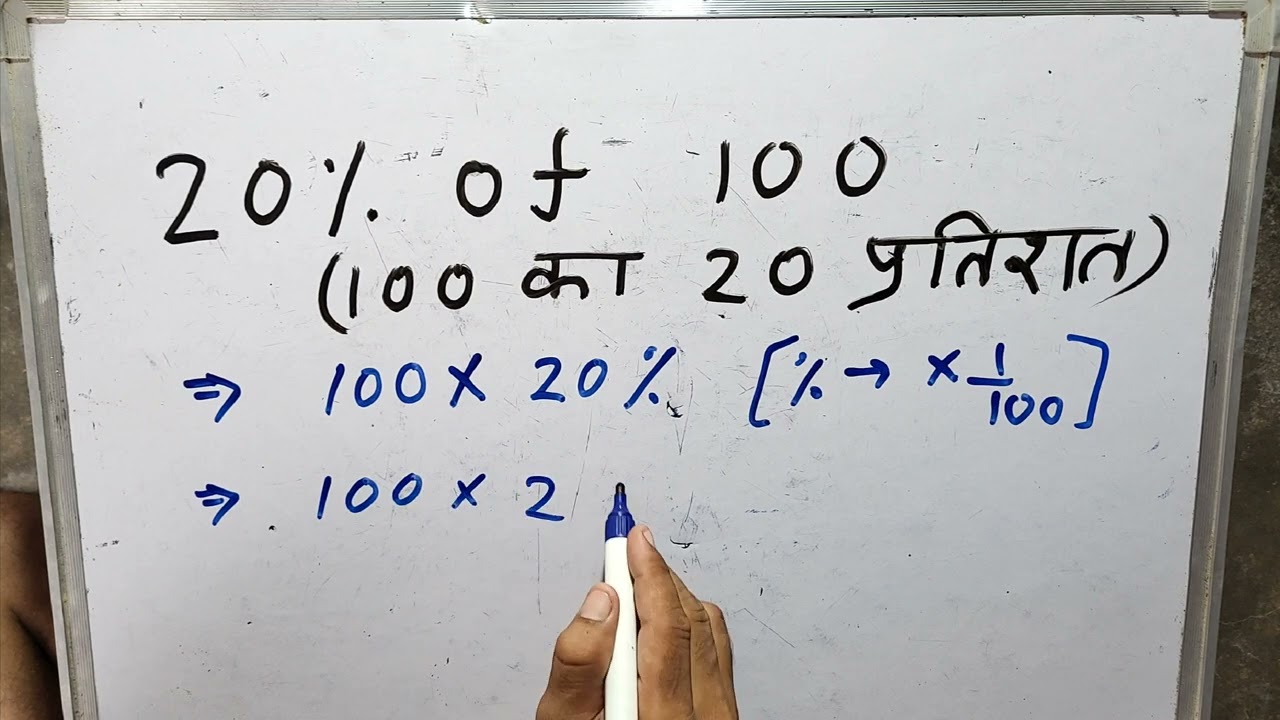 20% of 100
(100 का 20 प्रतिशत)
⇒ 100 × 20% [% → × 1/100]
⇒ 100 × 2